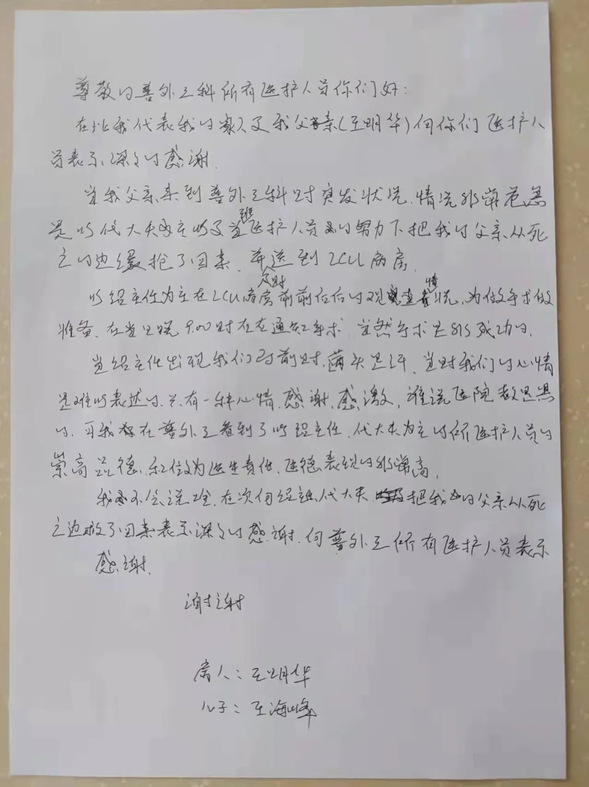 尊敬的普外三科所有医护人员你们好:
在此我代表我的家人及我父亲(王明华)向你们医护人
员表示深深的感谢.
当我父亲来到普外三科时突发状况,情况非常危急
是 代大夫 当班医护人员的努力下把我的父亲从死
亡的边缘抢了回来.及时 送到ICU病房.
主任为主在ICU病房前前后后的观查情况,为做手术做
准备.在当日晚9:00时 在通知手术.当然手术是非 成功的.
当 主任出现我们面前时,满头是汗,当时我们的心情
是难以表述的.只有一种心情,感谢,感激,谁说医院都是黑
的.可我 在普外三看到了以 主任,代大夫为主的所医护人员的
崇高品德,和做为医生责任,医德表现的非常高,
我 不会说 在次向 代大夫 把我的父亲从死
亡边救了回来表示深深的感谢.向普外三所有医护人员表示
感谢.
谢谢
病人:王明华
儿子:王海峰